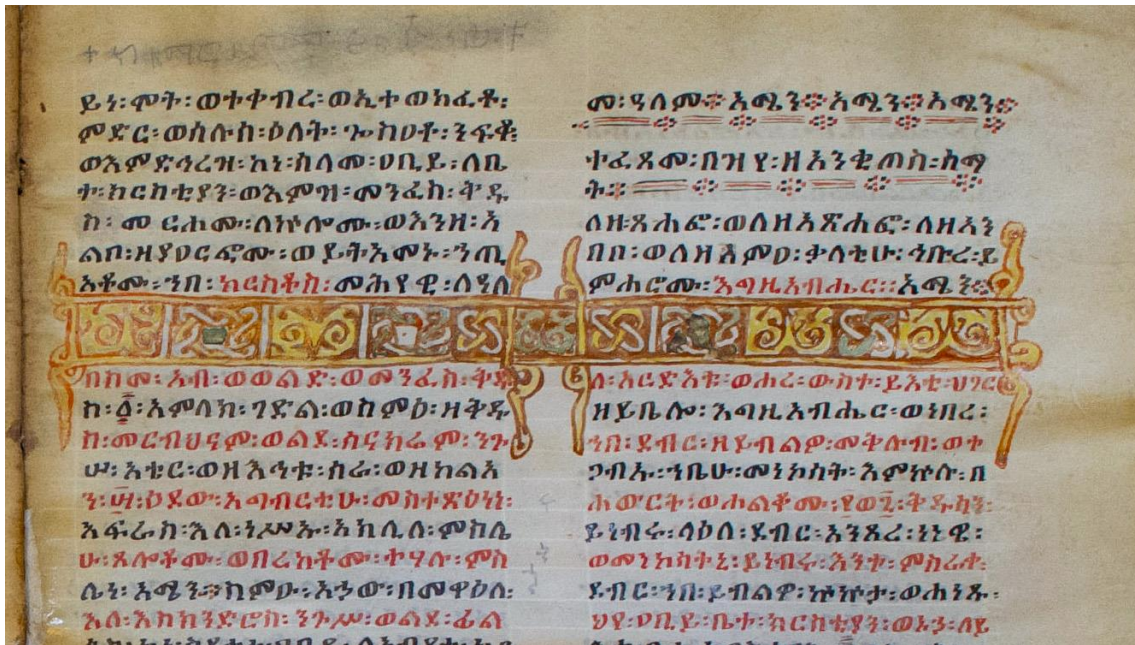 ይነ፡ሞት፡ወተቀብረ፡ወኢተወክፈቶ፡
ምድር፡ወሰሉስ፡ዕለት፡
ወእምድኅረዝ፡ከነ፡ሰላመ፡ዐቢይ፡ለቤ
ተ፡ክርስቲያን፡ወእምዝ፡መንፈስ፡ቅዱ
ስ፡ መ ርሐሙ፡ለኵሎሙ፡ወእንዘ፡አ
ልቦ፡ዘያዐርፎሙ፡ወይትአመኑ፡ንጢ
አቶሙ፡ኀበ፡ክርስቶስ፡መሕየዊ፡ለዓለ
በስመ፡አብ፡ወወልድ፡ወመንፈስ፡ቅዱ
ስ፡፩፡አምላክ፡ገድል፡ወስምዕ፡ዘቅዱ
ስ፡መርብህናም፡ወልደ፡ስናክሬም፡ንጉ
ሠ፡አቴር፡ወዘእኅቱ፡ሰራ፡ወዘክልአ
ዕደው፡አግብርቲሁ፡መስተጽዕነነ፡
አፍራስ፡እለ፡ነሥኡ፡አክሊለ፡ምስሌ
ሁ፡ጸሎቶሙ፡ወበረከቶሙ፡ተሃሉ፡ምስ
ሌነ፡አሜን፡ስምዑ፡አኃው፡በመዋዕለ፡
እለ፡እስክንድሮስ፡ንጉሥ፡ወልደ፡ፊል
መ፡ዓለም፡አሜን፡አሜን፡አሜን
ተፈጸመ፡በዝየ፡ዘአንቂጦስ፡ሰማ
ት፡
ለዘ፡ጸሐፎ፡ወለዘአጽሐፎ፡ለዘአን
በቦ፡ወለዘእምዐ፡ቃላቲሁ፡ኅቡረ፡ይ
ምሐሮሙ፡እግዚአብሔር፡፡አሜን፡
ለ፡አርድእቱ፡ወሐረ፡ውስተ፡ይእቲ፡ሀገር
ዘይቤሎ፡እግዚአብሔር፡ወነበረ፡
ኀበ፡ደብር፡ዘይብልዎ፡መቅሎብ፡ወተ
ጋብኡ፡ኀቤሁ፡መነኮሳት፡እምኵሉ፡በ
ሐውርት፡ወሐልቆሙ፡ቅዱሳን፡
ይነብሩ፡ላዕለ፡ደብር፡አንጸረ፡ነነዌ፡
ወመንኮሳትኒ፡ይነብሩ፡እንተ፡ምስራቀ፡
ደብር፡ኀበ፡ይብልዎ፡ኵኵታ፡ወሐነጹ፡
ህየ፡ዐቢይ፡ቤተ፡ክርስቲያን፡